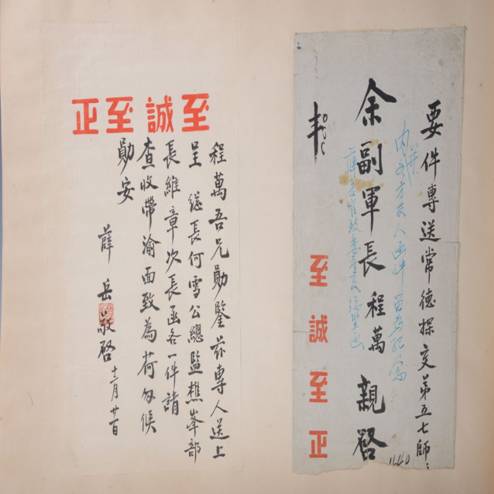 要件專送常德探交第五七師
余副軍長程萬 親啓
至誠至正
至誠至正
程萬吾兄勛鑒茲專人送上
呈 總長何雪公總監樵峯部
長維章次長函各一件請
查收帶渝面致為荷匆候
勛安
薛岳敬啓 十二月廿一日